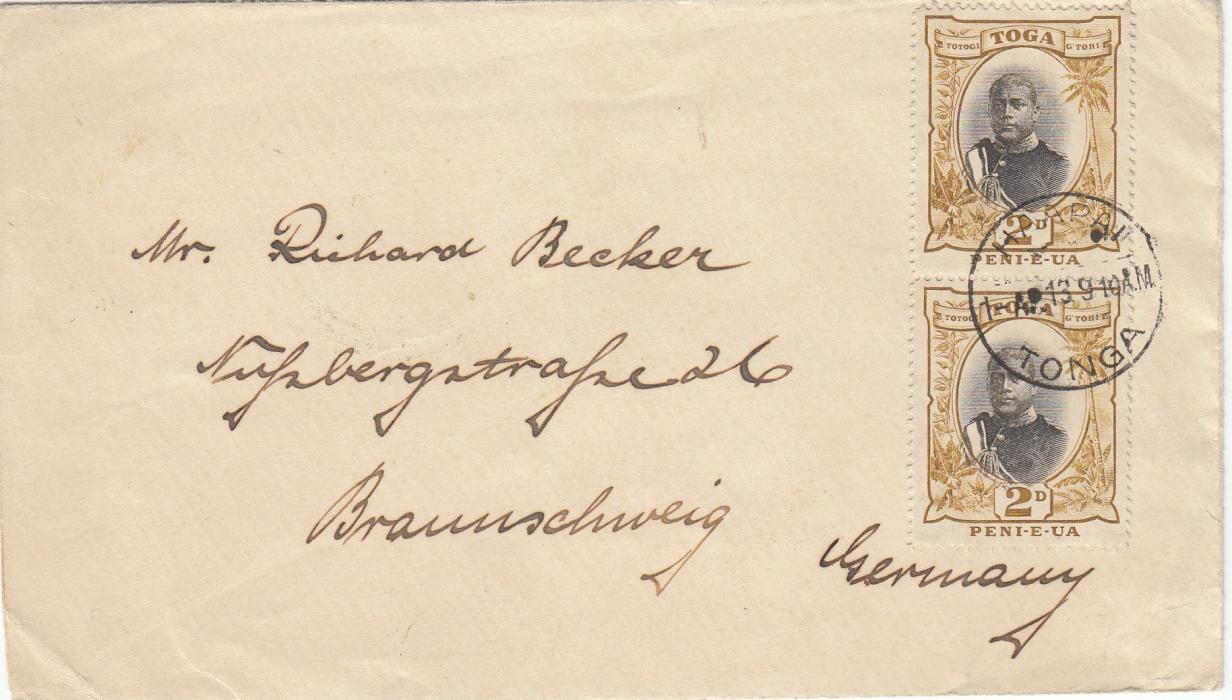 TOTOGI TOGA G'TOHI
2D
PENI-E-UA
HAAPAI
1-AP 13 9 10 A.M.
TONGA
TOTOGI TOGA G'TOHI
2D
PENI-E-UA
Mr. Richard Becker
Nußbergstraße 26
Braunschweig
Germany